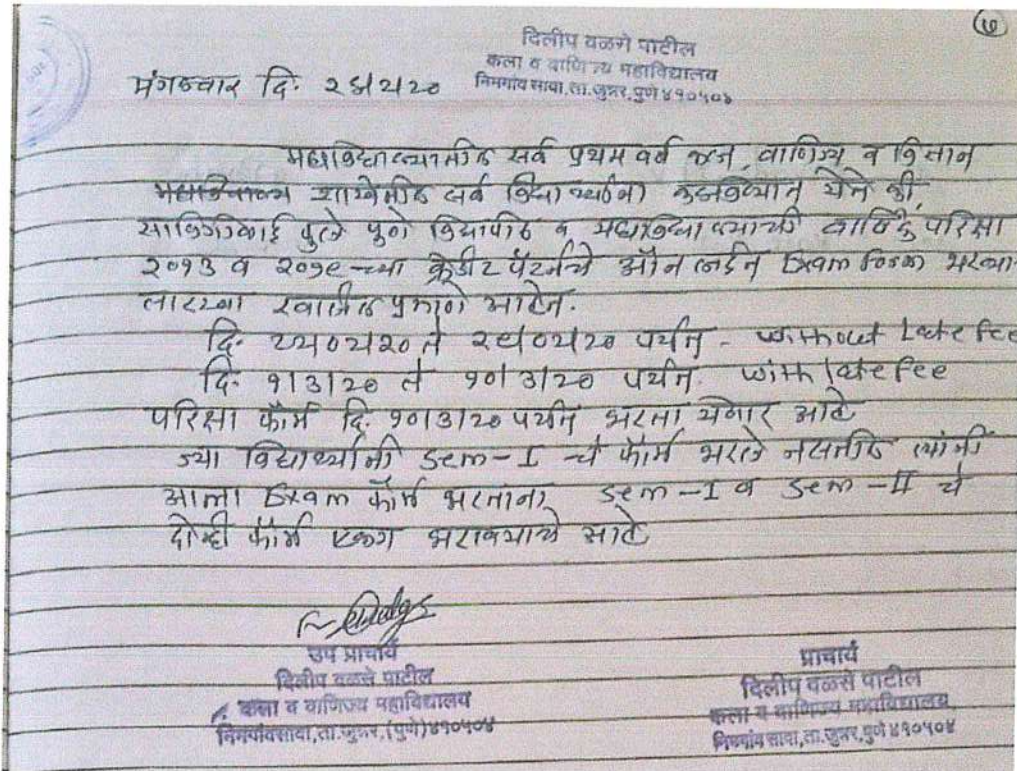 ७
दिलीप वळसे पाटील
कला व वाणिज्य महाविद्यालय
निमगांव सावा, ता. जुन्नर, पुणे ४१०५०४
मंगळवार दि.
महाविद्यालयातील सर्व प्रथम वर्ष कला, वाणिज्य व विज्ञान
शाखेतील सर्व विद्यार्थ्यांना कळविण्यात येते की,
सावित्रीबाई फुले पुणे विद्यापीठ व महाविद्यालयाची वार्षिक परिक्षा
२०१३ व २०१९-च्या क्रेडीट पॅटर्नचे ऑनलाईन Exam Form भरण्या-
तारखा खालील प्रमाणे आहेत.
दि. ते पर्यंत - without Late fee
दि. १|३|२० ते १०|३|२० पर्यंत. with late fee
परिक्षा फॉर्म दि. १०|३|२० पर्यंत भरता येणार आहे
ज्या विद्यार्थ्यांनी Sem-I -चे फॉर्म भरले नसतील त्यांनी
आता Exam फॉर्म भरताना Sem-I व Sem-II चे
दोन्ही फॉर्म भरावयाचे आहे
उप प्राचार्य
दिलीप वळसे पाटील
कला व वाणिज्य महाविद्यालय
निमगांवसावा, ता. जुन्नर, (पुणे) ४१०५०४
प्राचार्य
दिलीप वळसे पाटील
कला व वाणिज्य महाविद्यालय,
निमगांव सावा, ता. जुन्नर, पुणे ४१०५०४